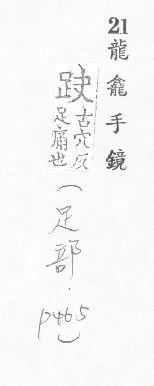 21 龍龕手鏡
趹 古穴反
足痛也
(足部.
p465)